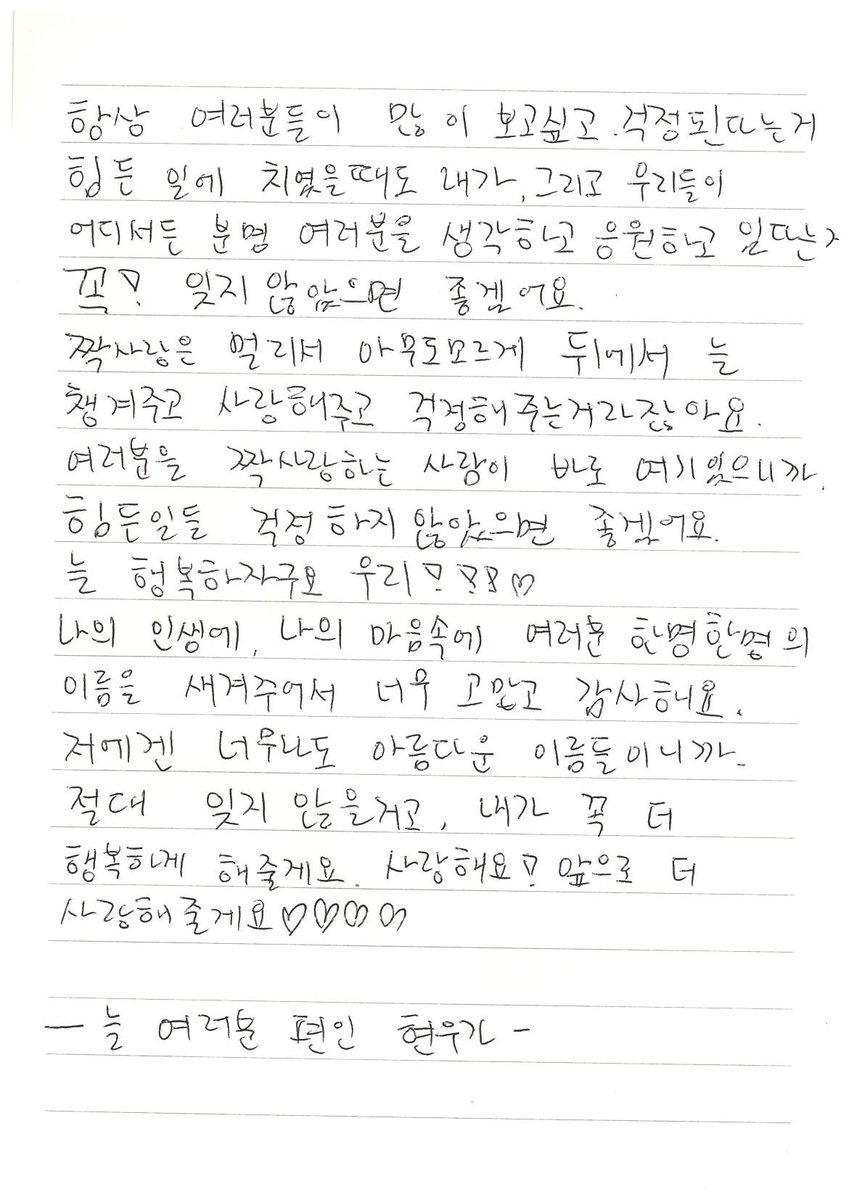 항상 여러분들이 많이 보고싶고. 걱정된다는거
힘든 일에 치였을때도 내가, 그리고 우리들이
어디서든 분명 여러분을 생각하고 응원하고 있다는거
꼭! 잊지 않았으면 좋겠어요.
짝사랑은 멀리서 아무도모르게 뒤에서 늘
챙겨주고 사랑해주고 걱정해주는거라잖아요.
여러분을 짝사랑하는 사람이 바로 여기있으니까.
힘든일들 걱정하지 않았으면 좋겠어요.
늘 행복하자구요 우리!!!♡
나의 인생에, 나의 마음속에 여러분 한명한명의
이름을 새겨주어서 너무 고맙고 감사해요.
저에겐 너무나도 아름다운 이름들이니까-
절대 잊지 않을거고, 내가 꼭 더
행복하게 해줄게요. 사랑해요! 앞으로 더
사랑해줄게요♡♡♡♡
- 늘 여러분 편인 현우가 -